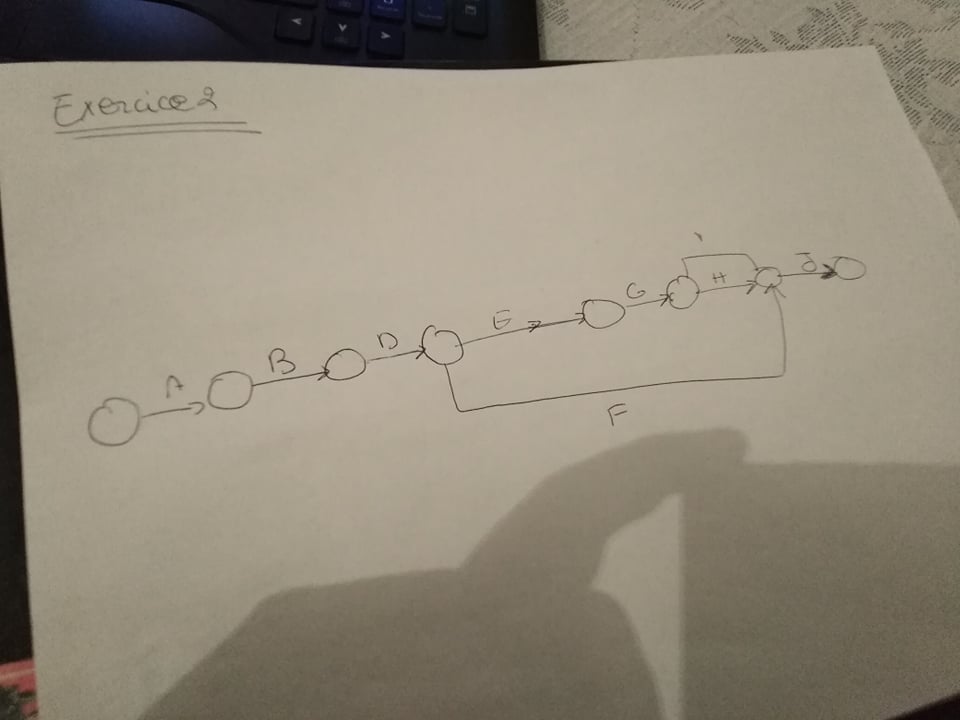 Exercice 2
A
B
D
E
G
H
J
F